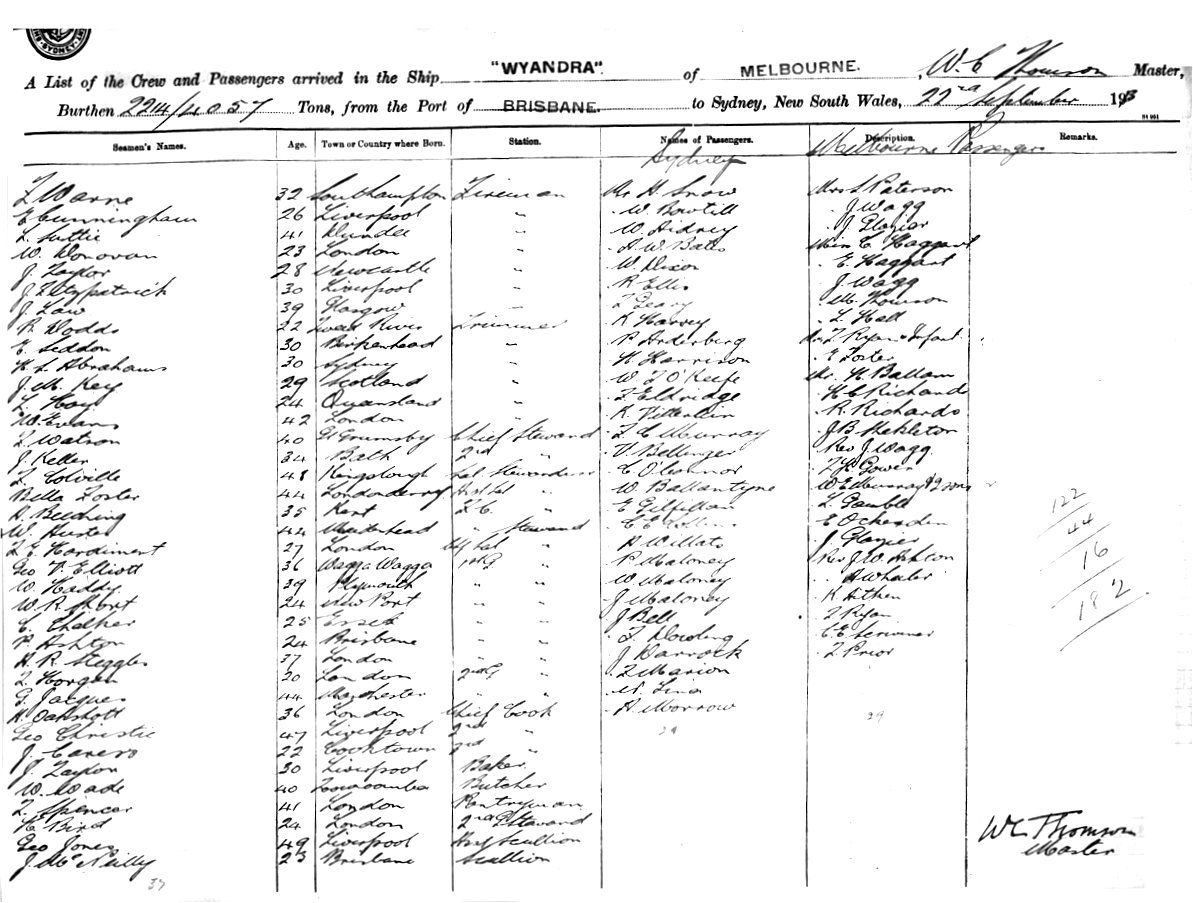 SYDNEY
A List of the Crew and Passengers arrived in the Ship "WYANDRA". of MELBOURNE. , W. C Thomson Master,
Burthen 2214/4057 Tons, from the Port of BRISBANE. to Sydney, New South Wales, 22nd September 193
Seamen's Names. Age. Town or Country where Born. Station. Names of Passengers. Description. Remarks.
Sydney Melbourne Passengers
F Warne 32 Southampton Fireman Mr H. Snow Mrs S Paterson
E Cunningham 26 Liverpool " W. Bowtill J Wagg
L Suttie 41 Dundee " W. Aidney J Glazier
W. Donovan 23 London " A W. Bates Miss C Haggart
J. Taylor 28 Newcastle " W Dixon E. Haggart
J Fitzpatrick 30 Liverpool " R Ellis J Wagg
J. Law 39 Glasgow " T Geary M. Thomson
R Dodds 22 Tweed River Trimmer R Harvey L Hall
E. Seddon 30 Birkenhead " P Arderberg Mr T Ryan & Infant
H L Abrahams 30 Sydney " H. Harrison E Foster
J. M. Key 29 Scotland " W J O'Keefe Mr. H. Ballam
L. Hoy 24 Queensland " T Eldridge H C Richards
W. Evans 42 London " K. R. Richards
T. Watson 40 Gt Grumsby Chief Steward T. C Murray J B Shekleton
J. Keller 34 Bath 2nd " V Bellinger Rev J. Wagg
T. Colville 48 Kingslough Sal. Stewardess C O'Connor Gower
Bella Foster 44 Londonderry " W. Ballantyne W E Murray & 2 sons
A. Beeching 35 Kent " E Gilfillan L Gamble
W. Huster 42 " Steward C E E Ockenden
T. E. Hardiment 27 London " A Willats J. Glazier
Geo V. Elliott 36 Wagga Wagga " P Maloney Rev J. W. Ashton
W. Haddy 39 Plymouth " " W Maloney A Wheeler
W. R. 24 New Port " " J Maloney R Aitken
C. Thalker 25 Essex " " J Bell J Ryan
P. Ashton 24 Brisbane " " T. Dowling C E Scrivener
A. R. Steggles 37 London " " J Darrock T. Prior
T. Horgan 20 London " T Marion
G. Jacques 44 Manchester " " N. Fina
H. Oakshott 36 London Chief Cook A Morrow
Geo Christie 47 Liverpool 2nd " 29 29
J. Canero 22 Cooktown 3rd "
J. Taylor 30 Liverpool Baker
W. Wade 40 Toowoomba Butcher
T. Spencer 41 London Pantryman
H. Bird 24 London 2nd P Steward
Geo Jones 49 Liverpool Scullion
J. McNeilly 23 Brisbane Scullion
37
122
44
16
182
W C Thomson
Master